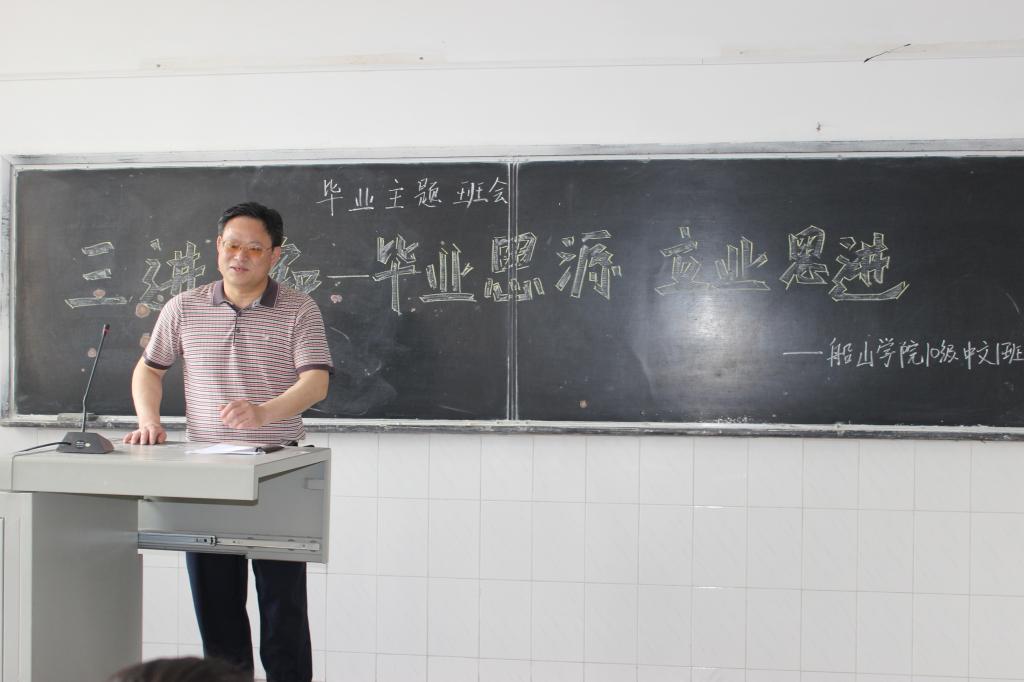 毕业主题班会
三讲 — 毕业思源 立业思进
——船山学院10级中文1班